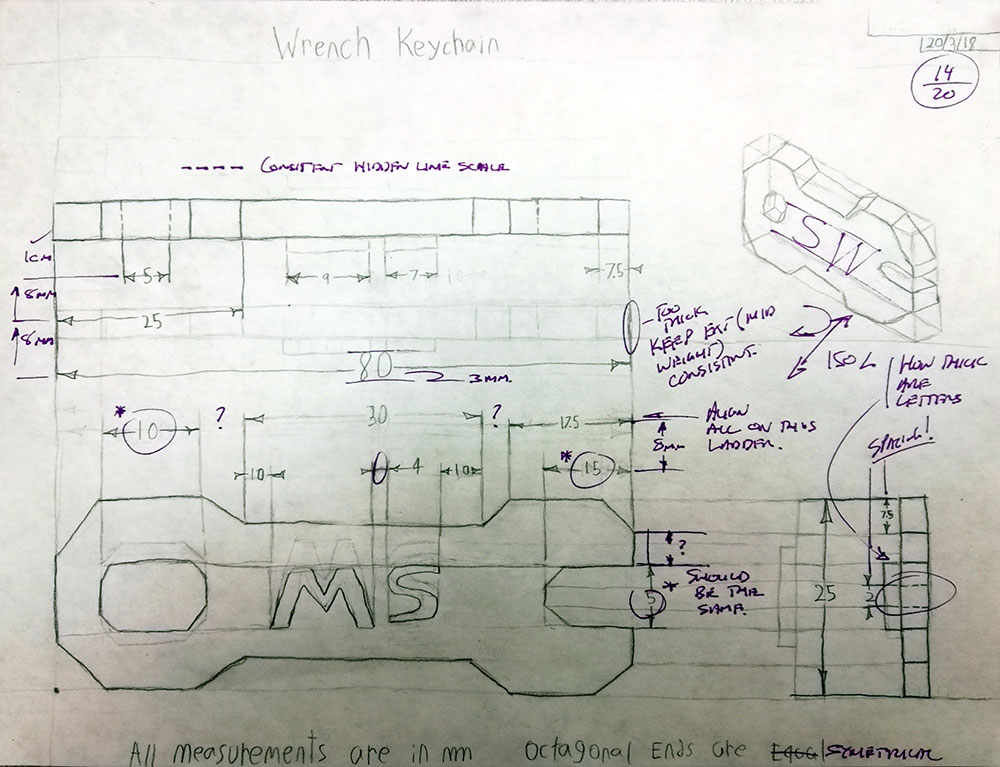 Wrench Keychain
120/3/18
14
20
---- CONSISTENT HIDDEN LINE SCALE
SW
1CM
5
9
7
7.5
8MM
25
8MM
80
3MM.
TOO
THICK
KEEP EXT (MID
WEIGHT)
CONSISTANT.
ISO L
HOW THICK
ARE
LETTERS
SPACING!
* 10
?
30
?
17.5
ALIGN
ALL ON THIS
LADDER.
8MM
10
4
10
* 15
7.5
?
MS
5
* SHOULD
BE THE
SAME.
25
2
All measurements are in mm
Octagonal Ends are Equal SYMETRICAL